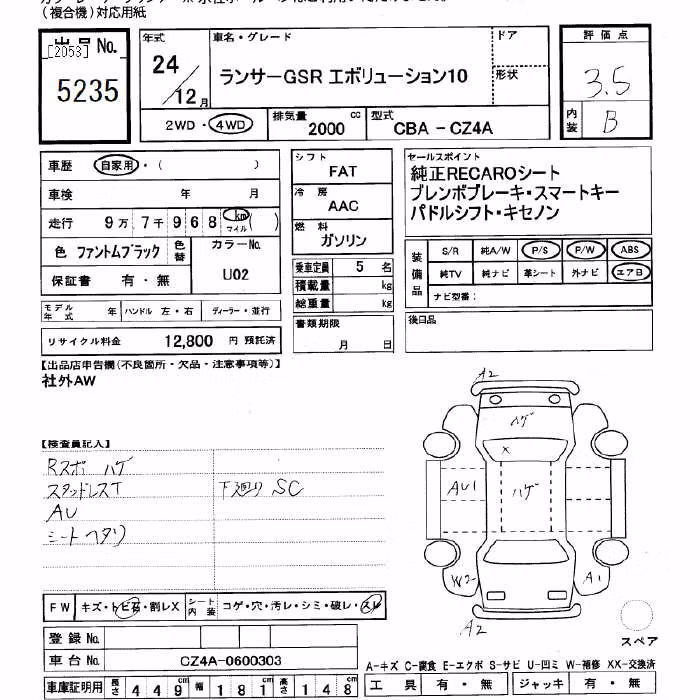 (複合機)対応用紙
出品No.
[2053]
5235
年式 24/12月
車名・グレード
ランサーGSR エボリューション10
ドア
形状
評価点
3.5
内装 B
2WD・4WD
排気量 2000 cc
型式 CBA - CZ4A
車歴 自家用・( )
車検 年 月
走行 9万 7千 9 6 8 km マイル ( )
色 ファントムブラック 色替 カラーNo. U02
保証書 有・無
モデル年式 年 ハンドル 左・右 ディーラー・並行
リサイクル料金 12,800 円 預託済
シフト FAT
冷房 AAC
燃料 ガソリン
乗車定員 5 名
積載量 kg
総重量 kg
書類期限 月 日
セールスポイント
純正RECAROシート
ブレンボブレーキ・スマートキー
パドルシフト・キセノン
装備品 S/R 純A/W P/S P/W ABS
純TV 純ナビ 革シート 外ナビ エアB
ナビ型番:
後日品
【出品店申告欄(不良箇所・欠品・注意事項等)】
社外AW
【検査員記入】
Rスポ ハゲ
スタッドレスT 下廻り SC
AU
シートヘタリ
FW キズ・トビ石・割レX シート内装 コゲ・穴・汚レ・シミ・破レ・スレ
登録No.
車台No. CZ4A-0600303
車庫証明用 長さ 449 幅 181 高さ 148
A2
ハゲ
X
AU1
ハゲ
W2
A1
A2
スペア
A-キズ C-腐食 E-エクボ S-サビ U-凹ミ W-補修 XX-交換済
工具 有・無 ジャッキ 有・無